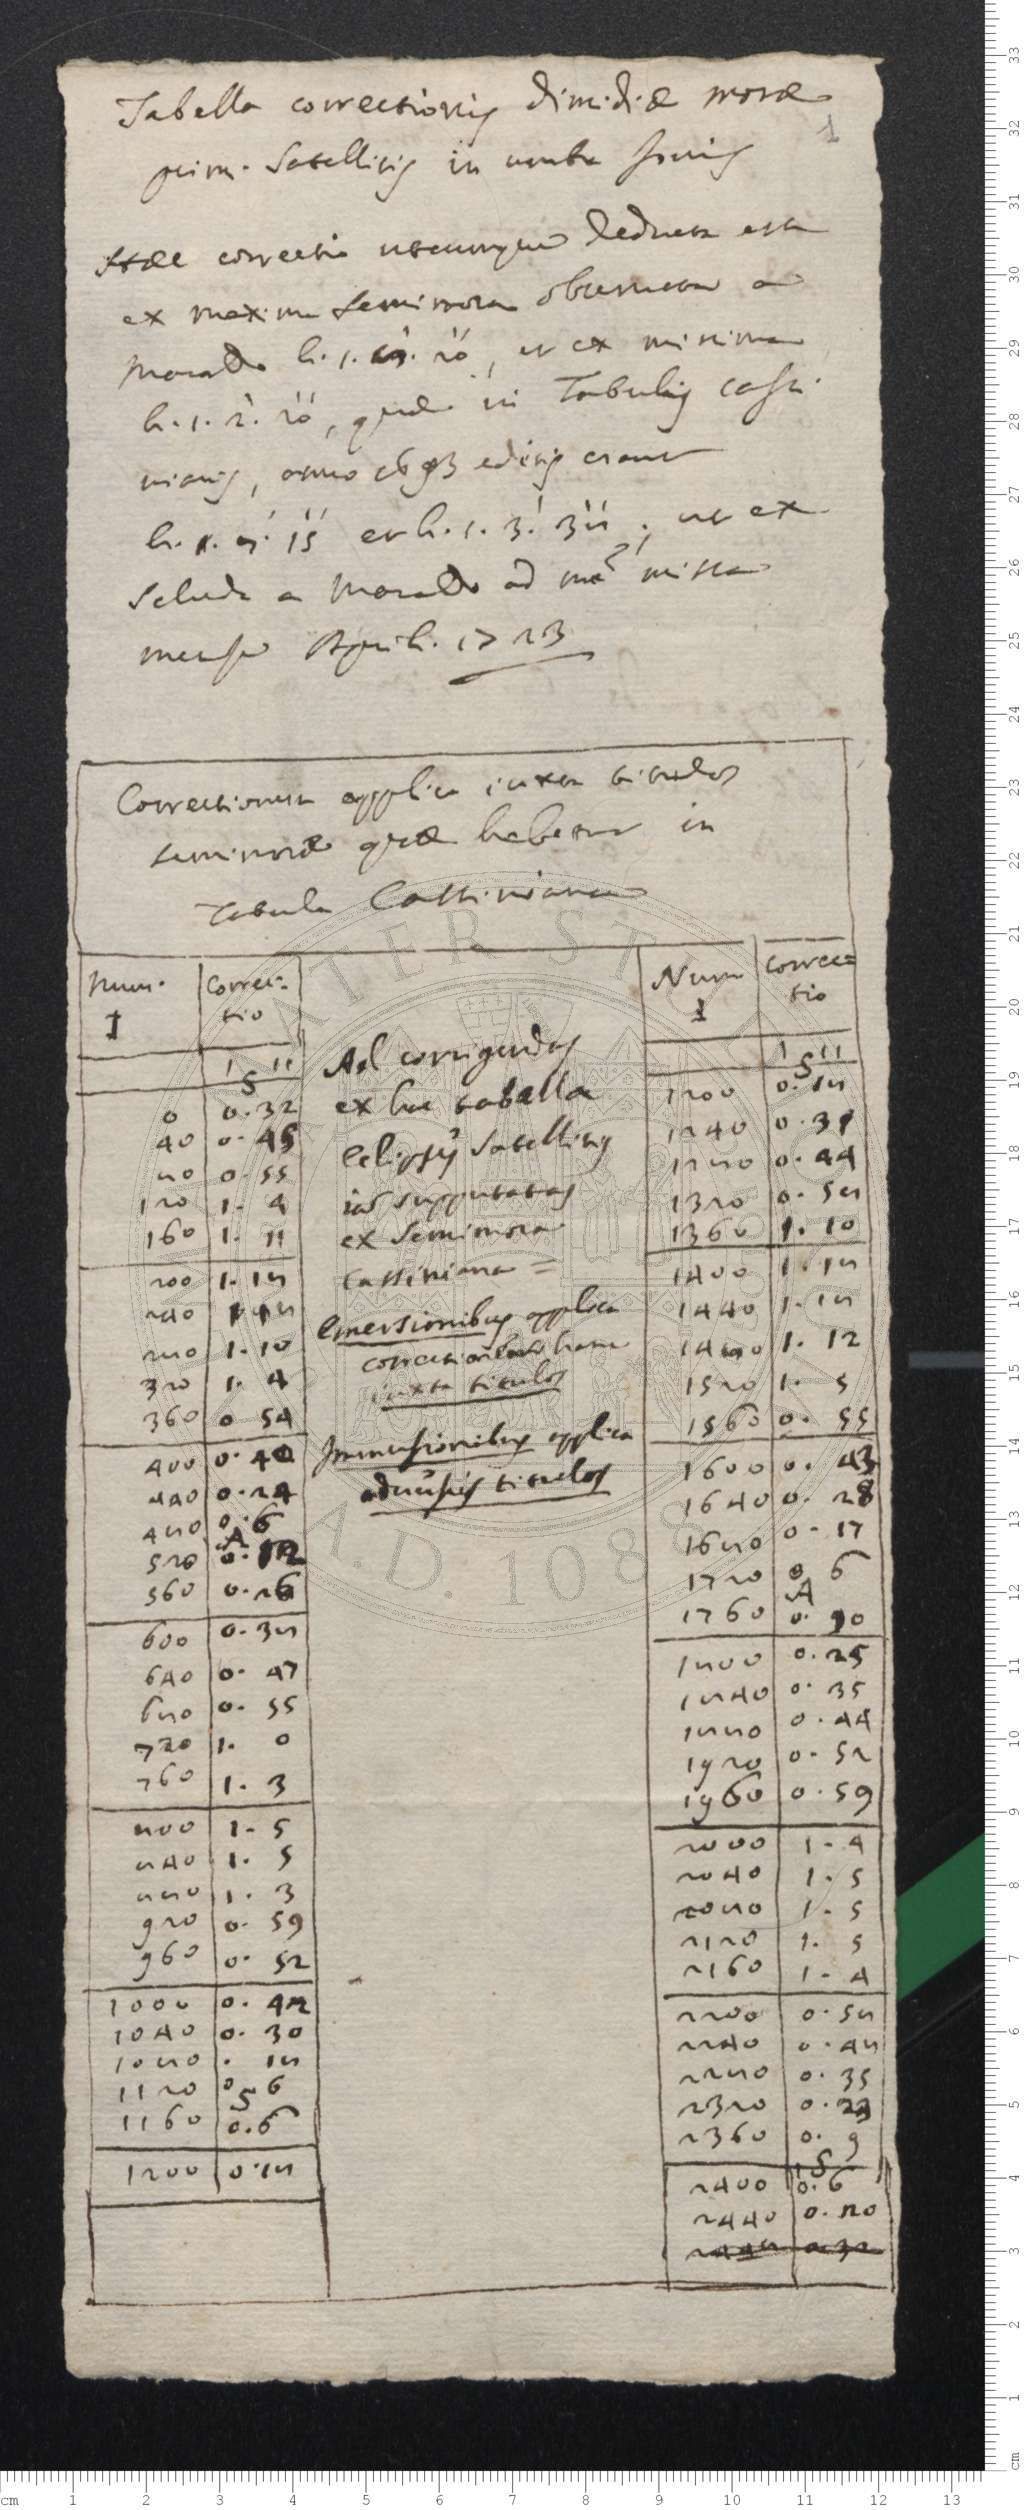 Tabella correctionis dimidiæ moræ
1
prim. Satellitis in umbra Jovis
Hæc correctio utcumque deducta est
ex maxima semimora observata a
Maraldo h. 1. 20'', et ex minima
h. 1. 2'. 20'', quæ in Tabulis Cassi
nianis, anno 1693 editis erant
h. 1. 15'' et h. 1. 3.' 38'', ut ex
Scheda a Maraldo ad me missa
mense Aprili. 1723
Correctionem applica iuxta titulos
semimoræ quæ habetur in
Tabula Cassiniana
Num. 1 Correc= tio
' S ''
0 0.32
40 0.45
80 0.55
120 1. 4
160 1. 11
200 1.18
240 1.18
280 1.10
320 1. 4
360 0 54
400 0.40
440 0.24
480 0.6
A
520 0.12
560 0.26
600 0.38
640 0. 47
680 0. 55
720 1. 0
760 1. 3
800 1. 5
840 1. 5
880 1. 3
920 0. 59
960 0. 52
1000 0. 42
1040 0. 30
1080 . 18
1120 0 6
S
1160 0.6
1200 0.18
Ad corrigendas
ex hac tabella
eclipses Satellitis
iam supputatas
ex Semimora
Cassiniana =
Emersionibus applica
correctionem hanc
iuxta titulos
Immersionibus applica
adversus titulos
Num 1 Correc= tio
' S ''
1200 0.18
1240 0.31
1280 0.44
1320 0.58
1360 1.10
1400 1.18
1440 1.18
1480 1. 12
1520 1. 5
1560 0. 55
1600 0. 43
1640 0. 28
1680 0. 17
1720 0 6
A
1760 0. 10
1800 0.25
1840 0. 35
1880 0.44
1920 0. 52
1960 0.59
2000 1. 4
2040 1. 5
2080 1. 5
2120 1. 5
2160 1. 4
2200 0.58
2240 0.48
2280 0.35
2320 0.23
2360 0. 9
S
2400 0.6
2440 0.20